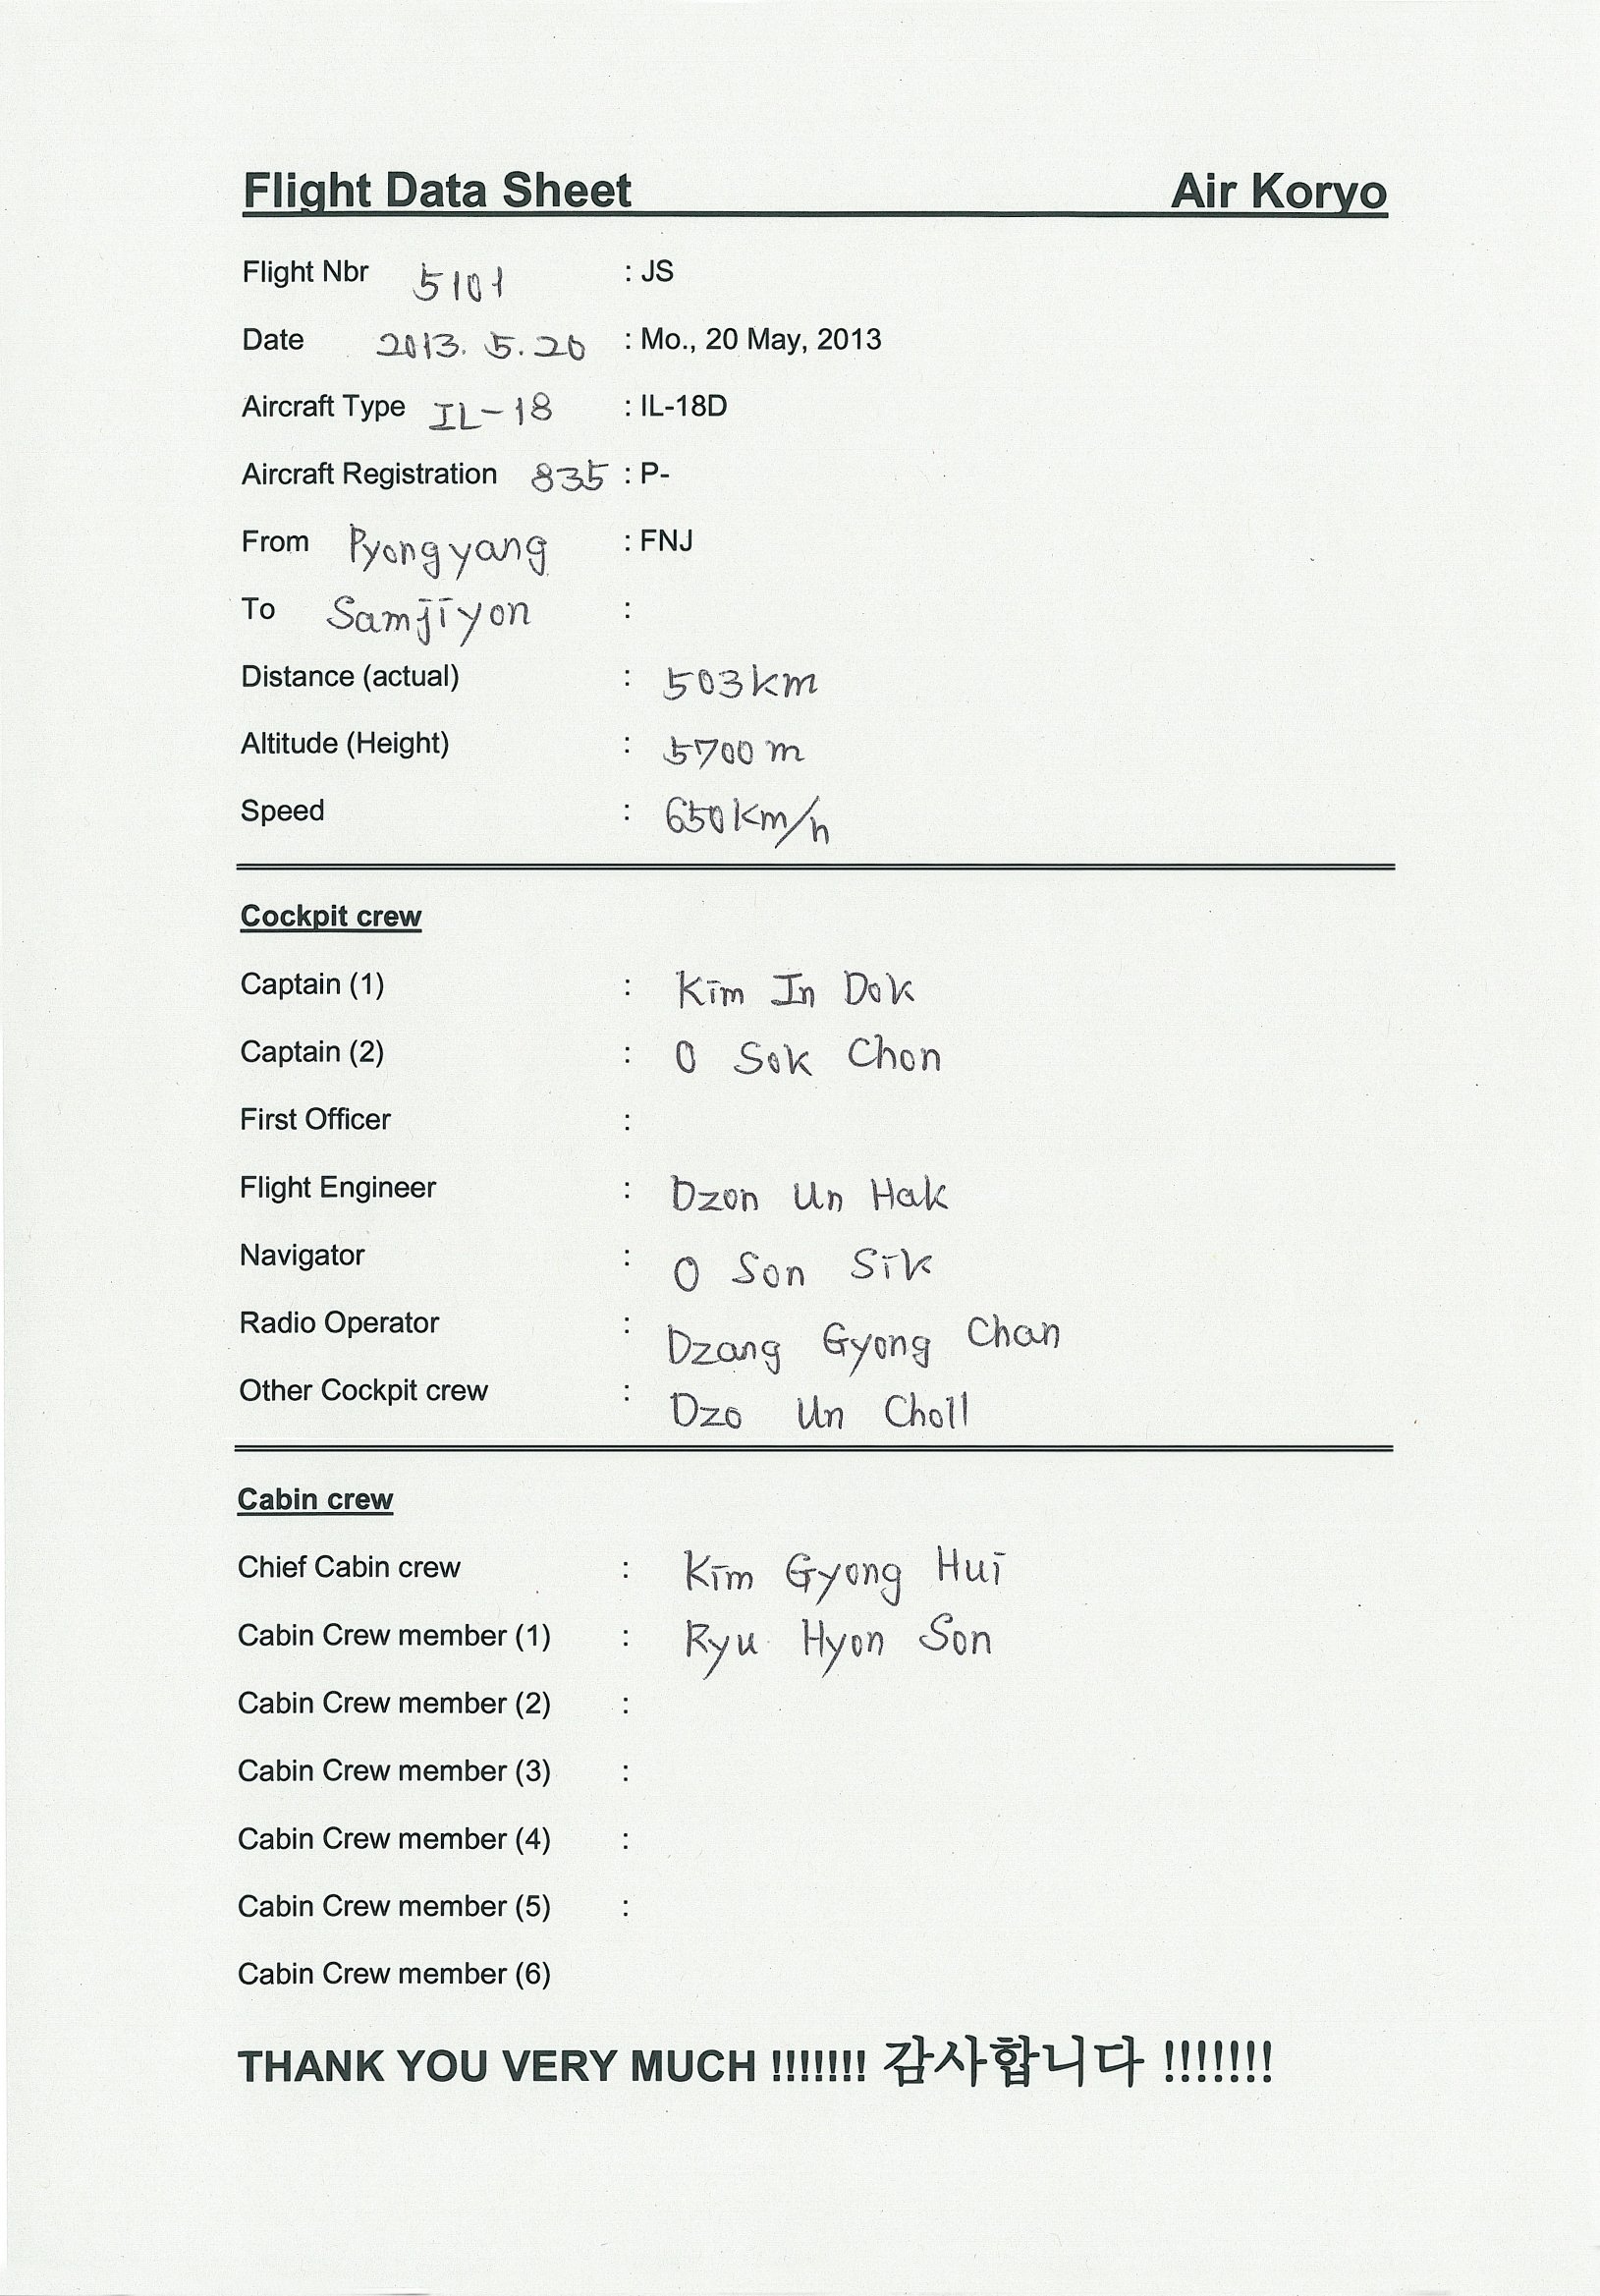 Flight Data Sheet Air Koryo
Flight Nbr 5101 : JS
Date 2013. 5. 20 : Mo., 20 May, 2013
Aircraft Type IL-18 : IL-18D
Aircraft Registration 835 : P-
From Pyongyang : FNJ
To Samjiyon :
Distance (actual) : 503km
Altitude (Height) : 5700 m
Speed : 650km/h
Cockpit crew
Captain (1) : Kim In Dok
Captain (2) : O Sok Chon
First Officer :
Flight Engineer : Dzon Un Hak
Navigator : O Son Sik
Radio Operator : Dzang Gyong Chan
Other Cockpit crew : Dzo Un Choll
Cabin crew
Chief Cabin crew : Kim Gyong Hui
Cabin Crew member (1) : Ryu Hyon Son
Cabin Crew member (2) :
Cabin Crew member (3) :
Cabin Crew member (4) :
Cabin Crew member (5) :
Cabin Crew member (6)
THANK YOU VERY MUCH !!!!!!! 감사합니다 !!!!!!!